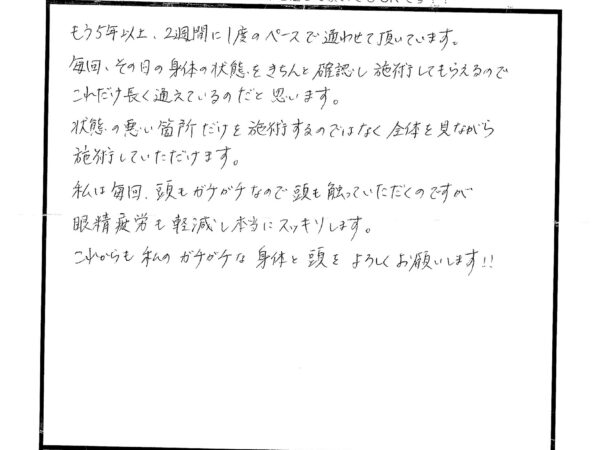 もう5年以上、2週間に1度のペースで通わせて頂いています。
毎回、その日の身体の状態をきちんと確認し施術してもらえるので
これだけ長く通えているのだと思います。
状態の悪い箇所だけを施術するのではなく全体を見ながら
施術していただけます。
私は毎回、頭もガチガチなので頭も触っていただくのですが
眼精疲労も軽減し本当にスッキリします。
これからも私のガチガチな身体と頭をよろしくお願いします!!